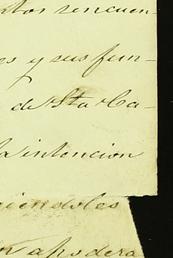 tos sencuen-
s y sus fun-
de Sta Ca-
la intencion
iendoles
apodera